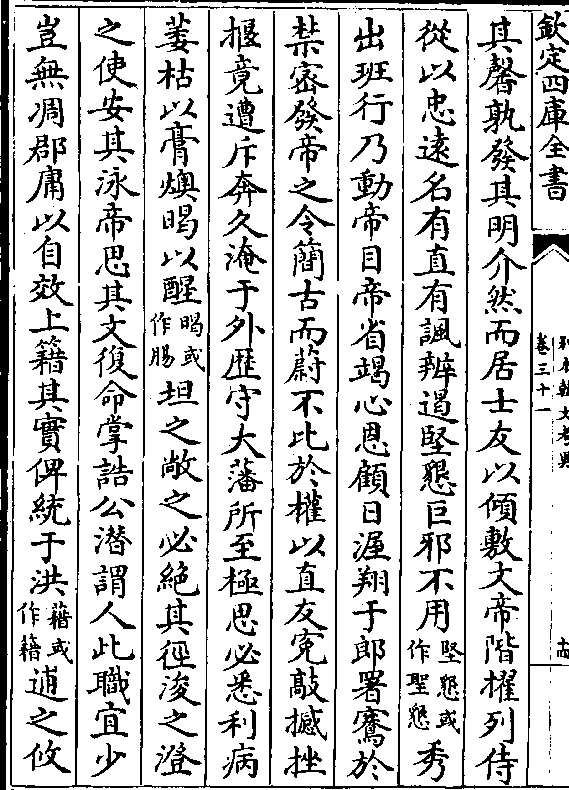 欽定四庫全書
別本韓文考異
卷三十一
十四
其馨孰發其明介然而居士友以傾敷文帝階擢列侍
從以忠遠名有直有諷辨遏堅懇巨邪不用堅懇或作聖懇秀
出班行乃動帝目帝省竭心恩顧日渥翔于郎署騫於
禁密發帝之令簡古而蔚不比於權以直友寃敲撼挫
揠竟遭斥奔久淹于外歷守大藩所至極思必悉利病
萎枯以膏燠暍以醒暍或作腸坦之敞之必絶其徑浚之澄
之使安其泳帝思其文復命掌誥公潛謂人此職宜少
豈無凋郡庸以自效上籍其實俾統于洪藉或作籍逋之攸